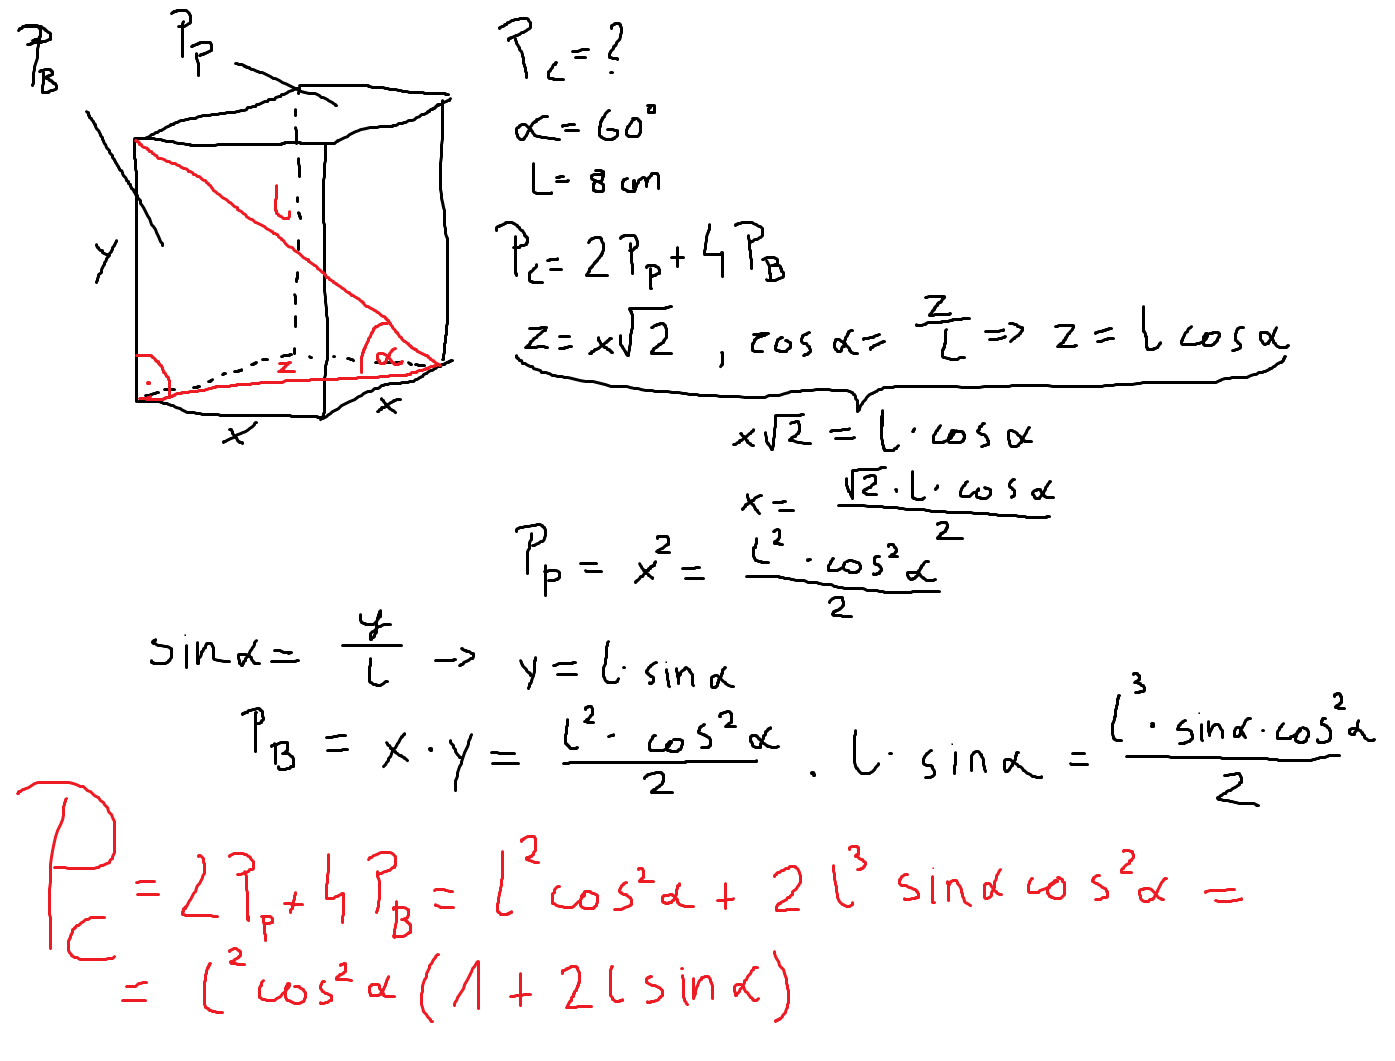 P_B
P_P
P_C = ?
α = 60°
L = 8 cm
P_C = 2P_P + 4P_B
y
l
z
α
x
x
z = x√2 , cos α = z/L => z = l cos α
x√2 = l · cos α
x = (√2 · L · cos α)/2
P_P = x² = (l² · cos² α)/2
sin α = y/L -> y = l · sin α
P_B = x · y = (l² · cos² α)/2 · l · sin α = (l³ · sin α · cos² α)/2
P_C = 2P_P + 4P_B = l² cos² α + 2 l³ sin α cos² α =
= l² cos² α (1 + 2 l sin α)